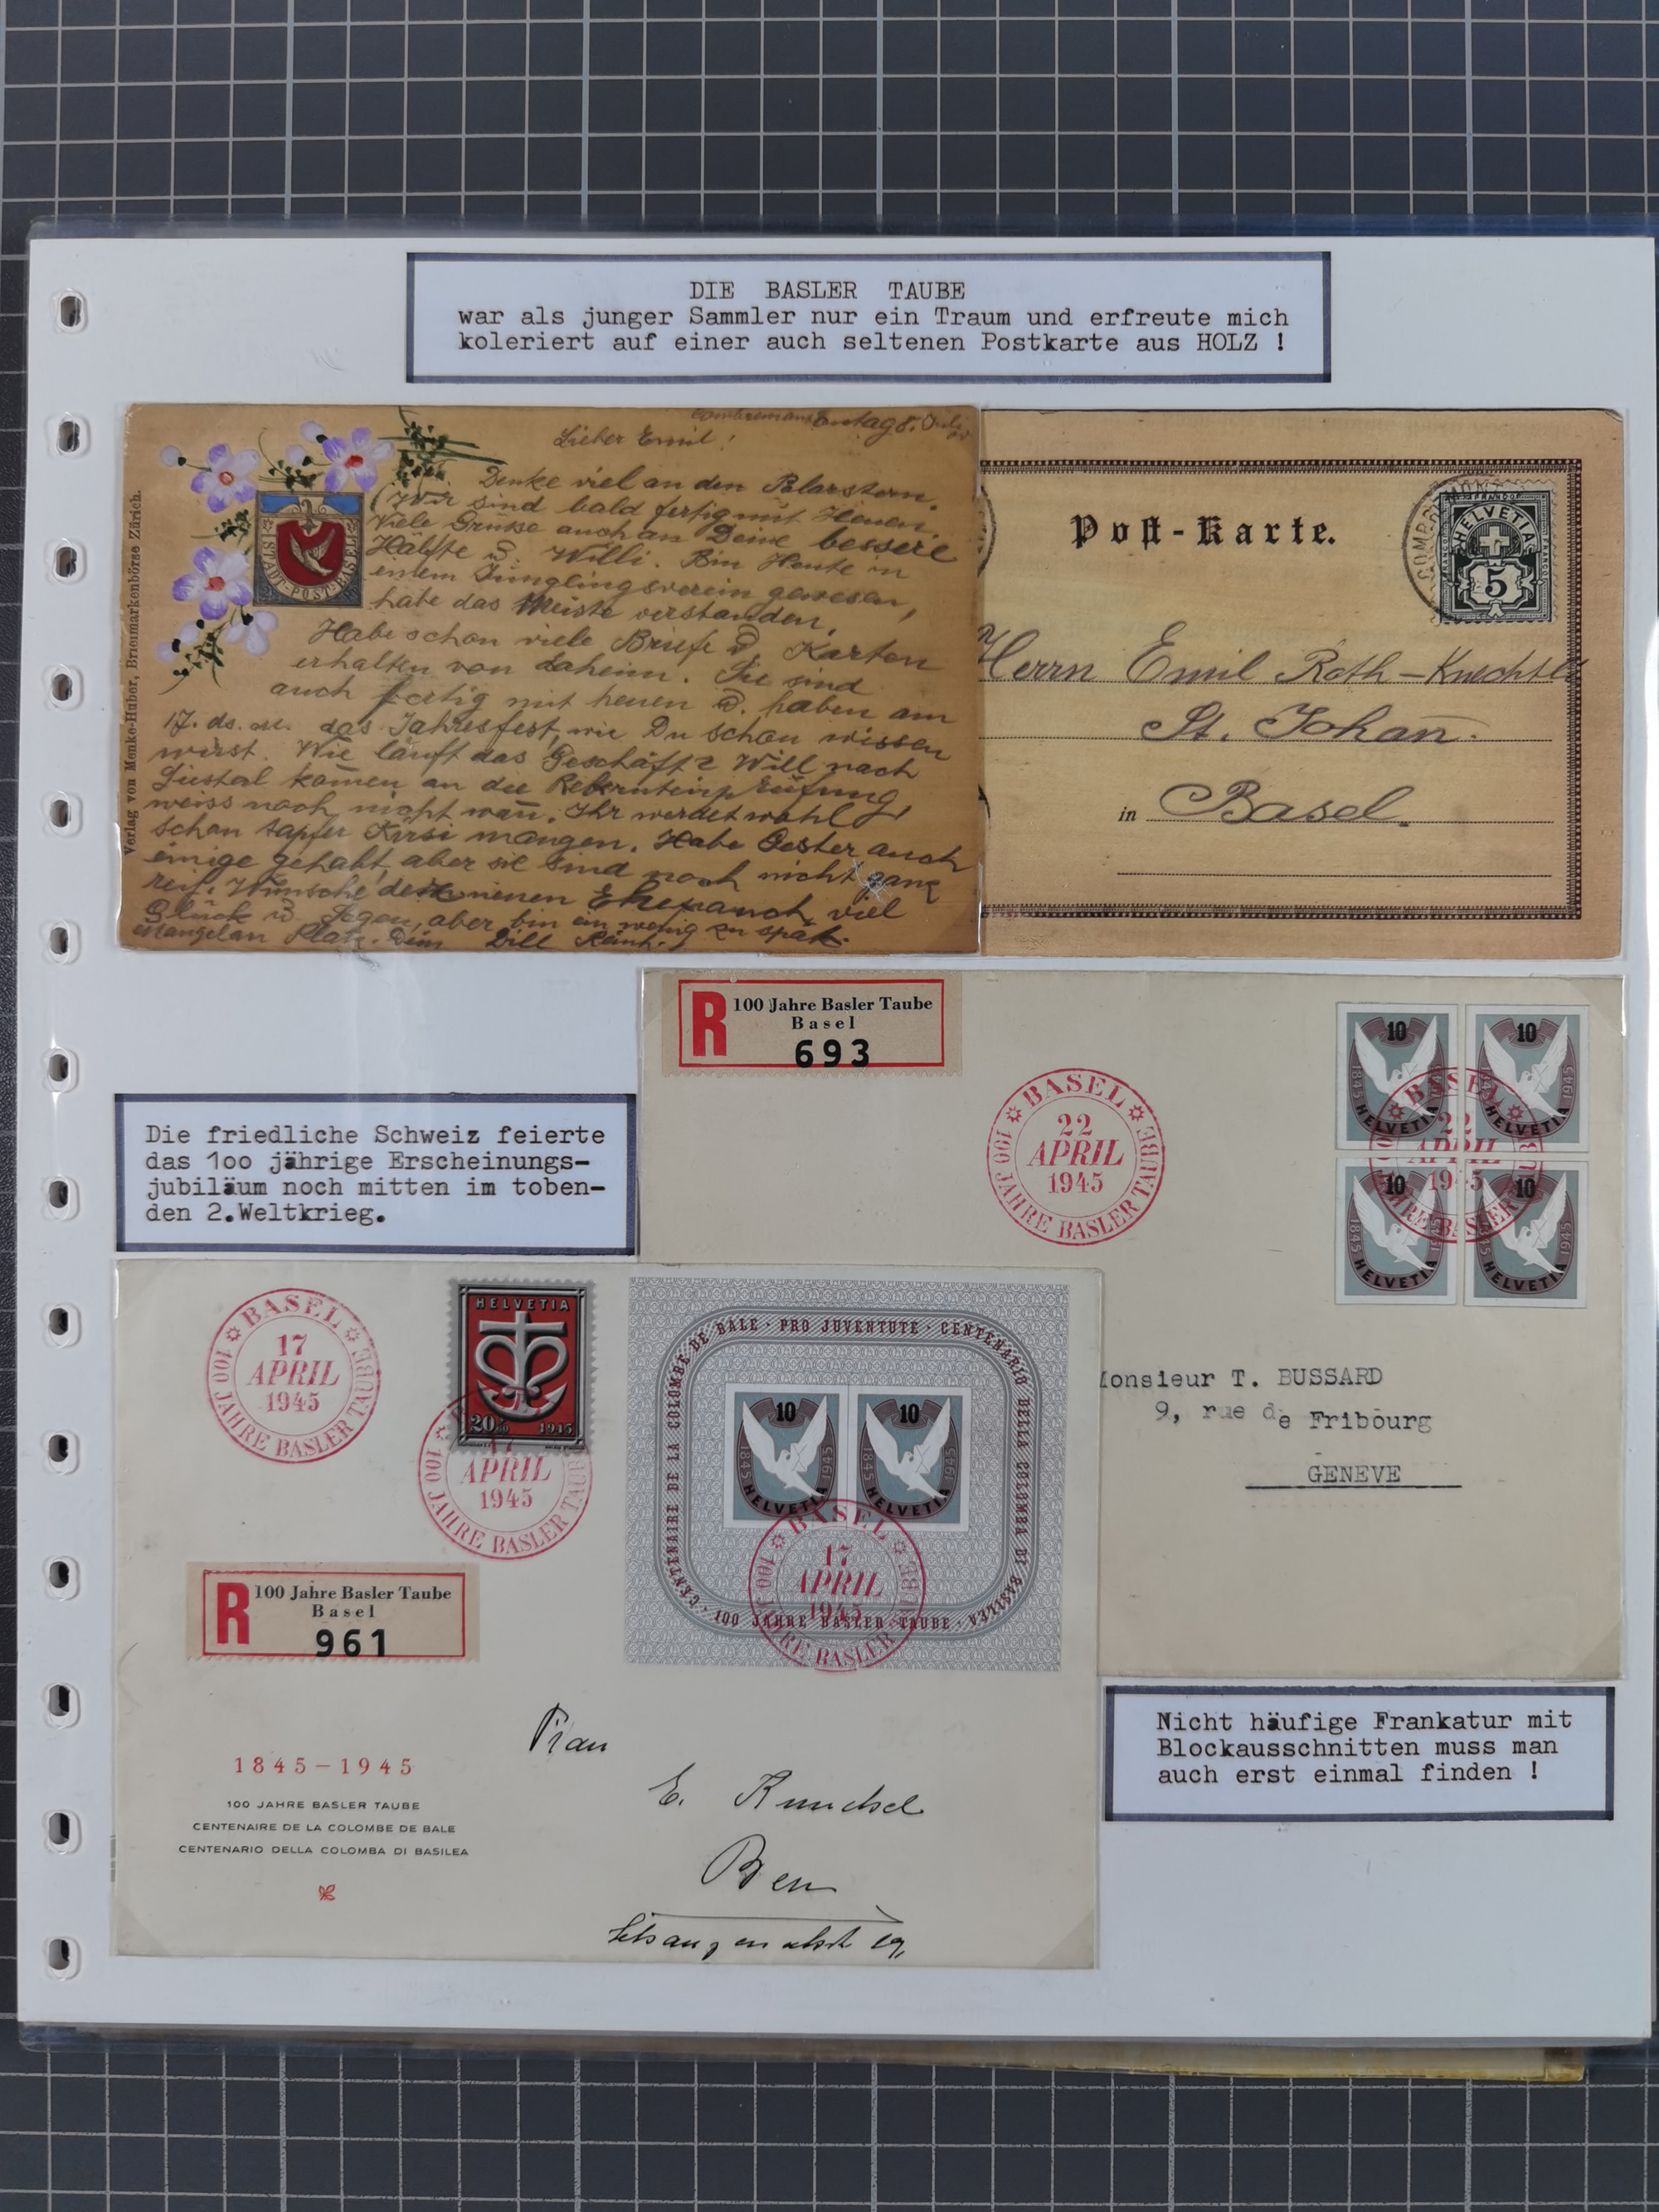 DIE BASLER TAUBE
war als junger Sammler nur ein Traum und erfreute mich
koleriert auf einer auch seltenen Postkarte aus HOLZ !
Verlag von Menke-Huber, Briefmarkenbörse Zürich.
Lieber Emil!
STADT-POST-BASEL
Denke viel an den Polarstern.
Wir sind bald fertig mit Heuen.
Viele Grüsse auch an Deine bessere
Hälfte u. Willi. Bin Heute in
einem Jünglingsverein gewesen,
habe das Meiste verstanden.
Habe schon viele Briefe u. Karten
erhalten von daheim. Sie sind
auch fertig mit heuen u. haben am
17. ds. das Jahresfest, wie Du schon wissen
wirst. Wie läuft das Geschäft? Will nach
Liestal komen an die
weiss noch nicht wan. Ihr werdet wohl
schon tapfer Kirsi mangen. Habe Gester auch
einige gehabt, aber sie sind noch nicht ganz
reif. Wünsche dem neuen viel
Glück u. Segen, aber bin ein wenig zu spät.
Mangel an Platz. Dein
Post-Karte.
FRANCO
HELVETIA
5
Herrn Emil Roth-Knechtli
St. Johan.
in Basel.
R 100 Jahre Basler Taube
Basel
693
BASEL
22
APRIL
1945
100 JAHRE BASLER TAUBE
10
1845 HELVETIA 1945
10
1845 HELVETIA 1945
10
1845 HELVETIA 1945
10
1845 HELVETIA 1945
BASEL
22
APRIL
1945
100 JAHRE BASLER TAUBE
Die friedliche Schweiz feierte
das 1oo jährige Erscheinungs-
jubiläum noch mitten im toben-
den 2.Weltkrieg.
Monsieur T. BUSSARD
9, rue de Fribourg
GENEVE
BASEL
17
APRIL
1945
100 JAHRE BASLER TAUBE
HELVETIA
20 1945
17
APRIL
1945
100 JAHRE BASLER TAUBE
CENTENAIRE DE LA COLOMBE DE BALE · PRO JUVENTUTE · CENTENARIO DELLA COLOMBA DI BASILEA ·
100 JAHRE BASLER TAUBE
10
1845 HELVETIA 1945
10
1845 HELVETIA 1945
BASEL
17
APRIL
1945
100 JAHRE BASLER TAUBE
R 100 Jahre Basler Taube
Basel
961
Frau
E.
Bern
19,
1845-1945
100 JAHRE BASLER TAUBE
CENTENAIRE DE LA COLOMBE DE BALE
CENTENARIO DELLA COLOMBA DI BASILEA
Nicht häufige Frankatur mit
Blockausschnitten muss man
auch erst einmal finden !